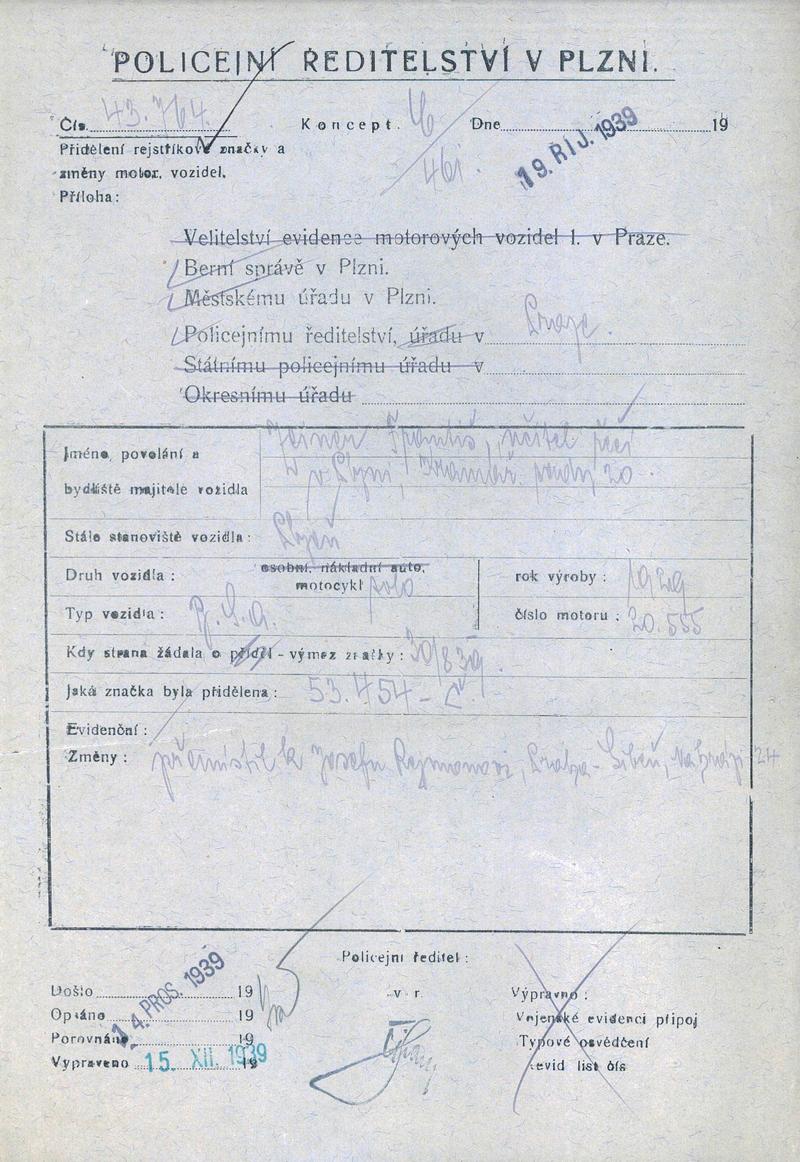 POLICEJNÍ ŘEDITELSTVÍ V PLZNI.
Čís. 43.764. Koncept. Dne 19
19. ŘÍJ. 1939
Přidělení rejstříkové značky a
změny motor. vozidel.
Příloha:
Velitelství evidence motorových vozidel I. v Praze.
Berní správě v Plzni.
Městskému úřadu v Plzni.
Policejnímu ředitelství, úřadu v Praze.
Státnímu policejnímu úřadu v
Okresnímu úřadu
Jméno, povolání a František, učitel řečí
bydliště majitele vozidla v Plzni, sady 20.
Stálé stanoviště vozidla: Plzeň
Druh vozidla: osobní, nákladní auto, motocykl solo rok výroby: 1929
Typ vozidla: B.S.A. číslo motoru: 20.555
Kdy strana žádala o příděl - výmez značky: 30/8 39.
Jaká značka byla přidělena: 53.454 - Č.
Evidenční:
Změny: přemístil k Josefu Rajmonovi, Praha - Libeň, Na hrázi 24
Policejní ředitel:
Došlo 19 v r. Výpravno:
Opsáno 19 Vojenské evidenci připoj
14. PROS. 1939
Porovnáno 19 Typové osvědčení
Vypraveno 15. XII. 1939 19 evid list čís